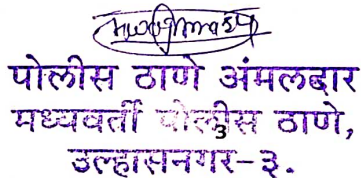 पोलीस ठाणे अंमलदार
मध्यवर्ती पोलीस ठाणे,
3
उल्हासनगर-३.